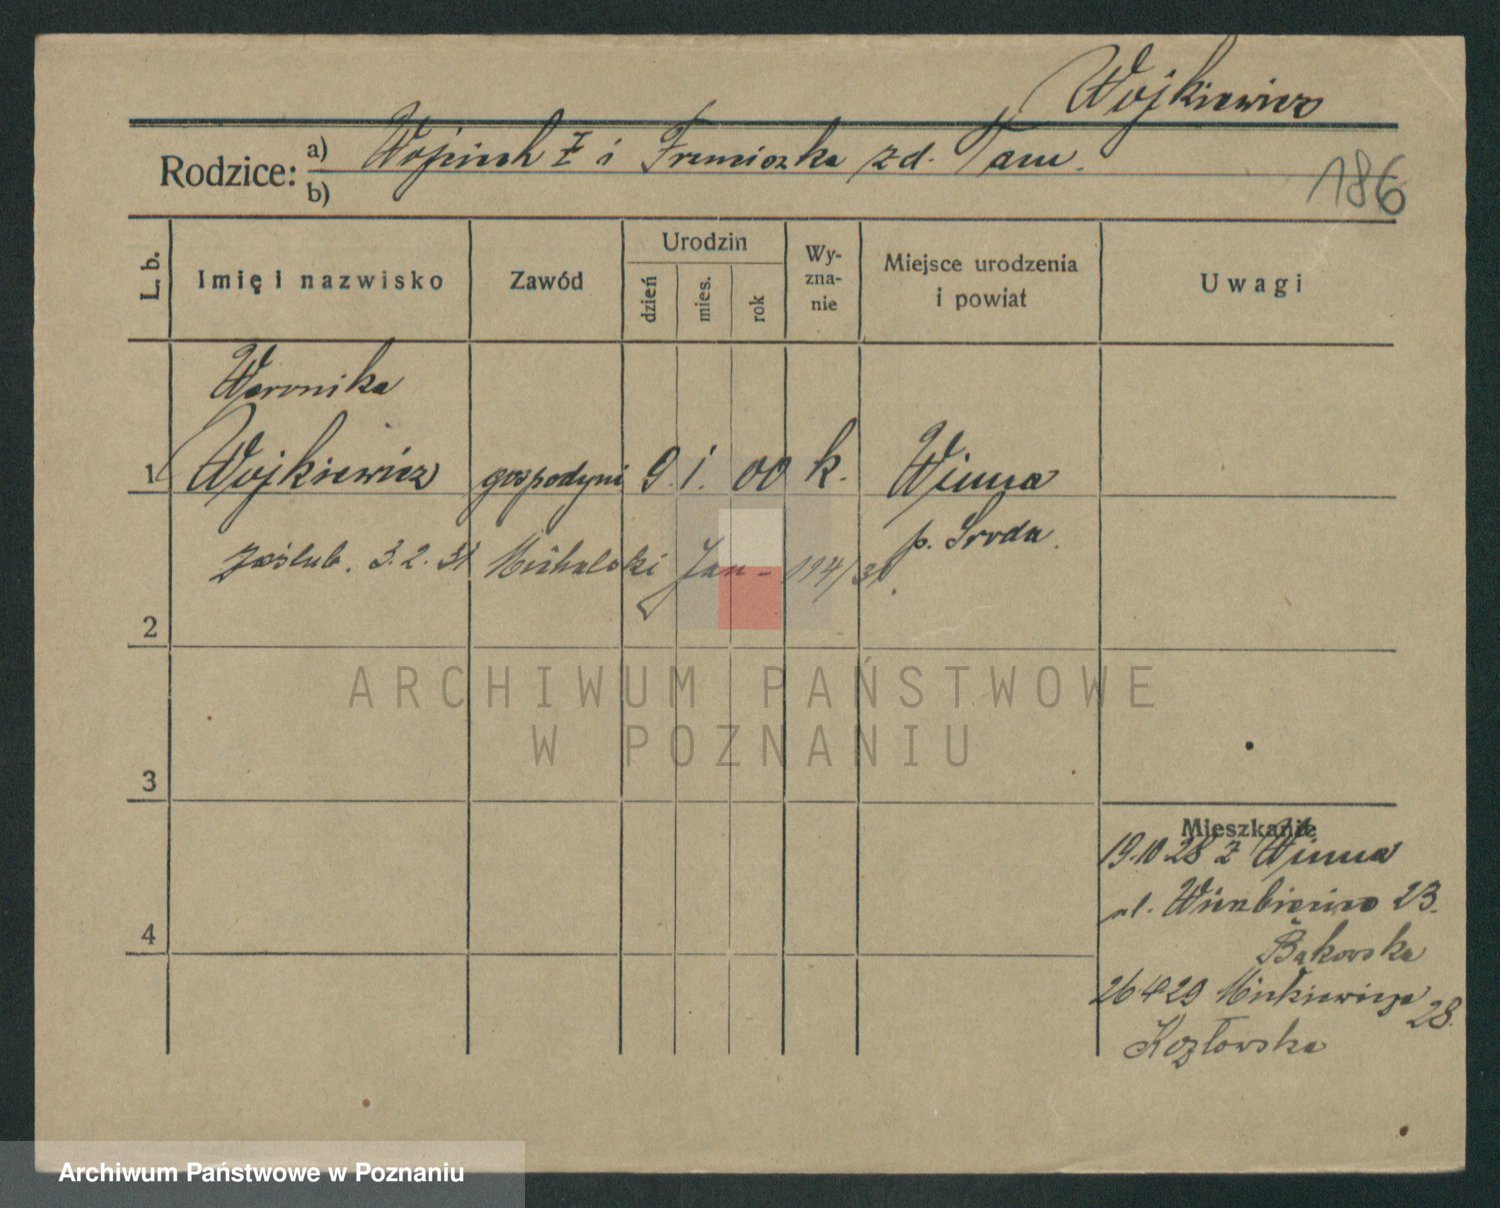 Wojkiewicz
Rodzice: a) Wojciech † i Franciszka zd. Tam.
b)
186
L. b.
Imię i nazwisko
Zawód
Urodzin
dzień
mies.
rok
Wy-
zna-
nie
Miejsce urodzenia
i powiat
Uwagi
Weronika
1 Wojkiewicz gospodyni 9. 1. 00 k. Winna
p. Sroda.
zaślub. 3.2.31 Michalski Jan - 114/31.
2
ARCHIWUM PAŃSTWOWE
W POZNANIU
3
Mieszkanie
19.10.28 z Winna
ul. 23.
4
Bąkowska
26 4 29 Mickiewicza 28.
Kozłowska
Archiwum Państwowe w Poznaniu